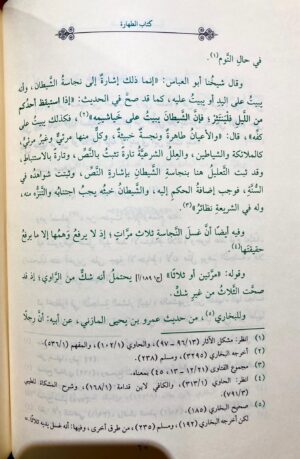 كتاب الطهارة
في حالِ النَّوم(١).
وقال شيخُنا أبو العباس: «إنما ذلك إشارةٌ إلى نجاسةِ الشَّيطان، وأنه
يبيتُ على اليدِ أو يبيتُ عليه، كما قد صحَّ في الحديث: «إذا استيقظَ أحدُكم
من اللَّيلِ فَلْيَنْتَثِرْ؛ فإنَّ الشَّيطانَ يَبيتُ على خَياشيمِه»(٢)، فكذلك يبيتُ على
كفِّه»، قال: «والأعيانُ طاهرةٌ ونجسةٌ خبيثةٌ، وكلٌّ منها مرئيٌّ وغيرُ مرئيٍّ،
كالملائكة والشياطين، والعِلَلُ الشرعيَّةُ تارةً تثبتُ بالنَّصِّ، وتارةً بالاستنباطِ،
وقد ثبت التَّعليلُ هنا بنجاسةِ الشَّيطانِ بالإشارةِ بالنَّصِّ، وثبتتْ شواهدُه في
السُّنَّةِ، فوجب إضافةُ الحكمِ إليه، والشَّيطانُ خبثُه يجبُ اجتنابُه والتَّنزُّه منه،
وله في الشريعةِ نظائرُ»(٣)
وفيه أيضًا أنَّ غَسلَ النَّجاسةِ ثلاثُ مرَّاتٍ؛ إذ لا يرفعُ وَهمُها إلا ما يرفعُ
حقيقتَها(٤)
وقوله: «مرَّتين أو ثلاثًا» يحتملُ أنه شكٌّ من الرَّاوي؛ إذ قد
صحَّت الثَّلاثُ من غيرِ شكٍّ.
وللبخاري(٥)، من حديثِ عمرو بن يحيى المازني، عن أبيه: أنَّ رجلًا
(١) انظر: مشكل الآثار (١٣/ ٩٦ - ٩٧)، والحاوي (١/ ١٠٢)، والمفهم (١/ ٥٣٦).
(٢) أخرجه البخاري (٣٢٩٥)، ومسلم (٢٣٨).
(٣) مجموع الفتاوى (٢١/ ١٢ - ١٣، ٤٥) بمعناه.
(٤) انظر: الحاوي (١/ ٣١٣)، والكافي لابن قدامة (١/ ١٦٨)، وشرح المشكاة للطيبي
(٣/ ٧٩١)
(٥) صحيح البخاري (١٨٥).
لكن أخرجه البخاري (١٩٢)، ومسلم (٢٣٥)، من طرق أخرى، وفيها: أنه غسل يديه ثلاثًا.